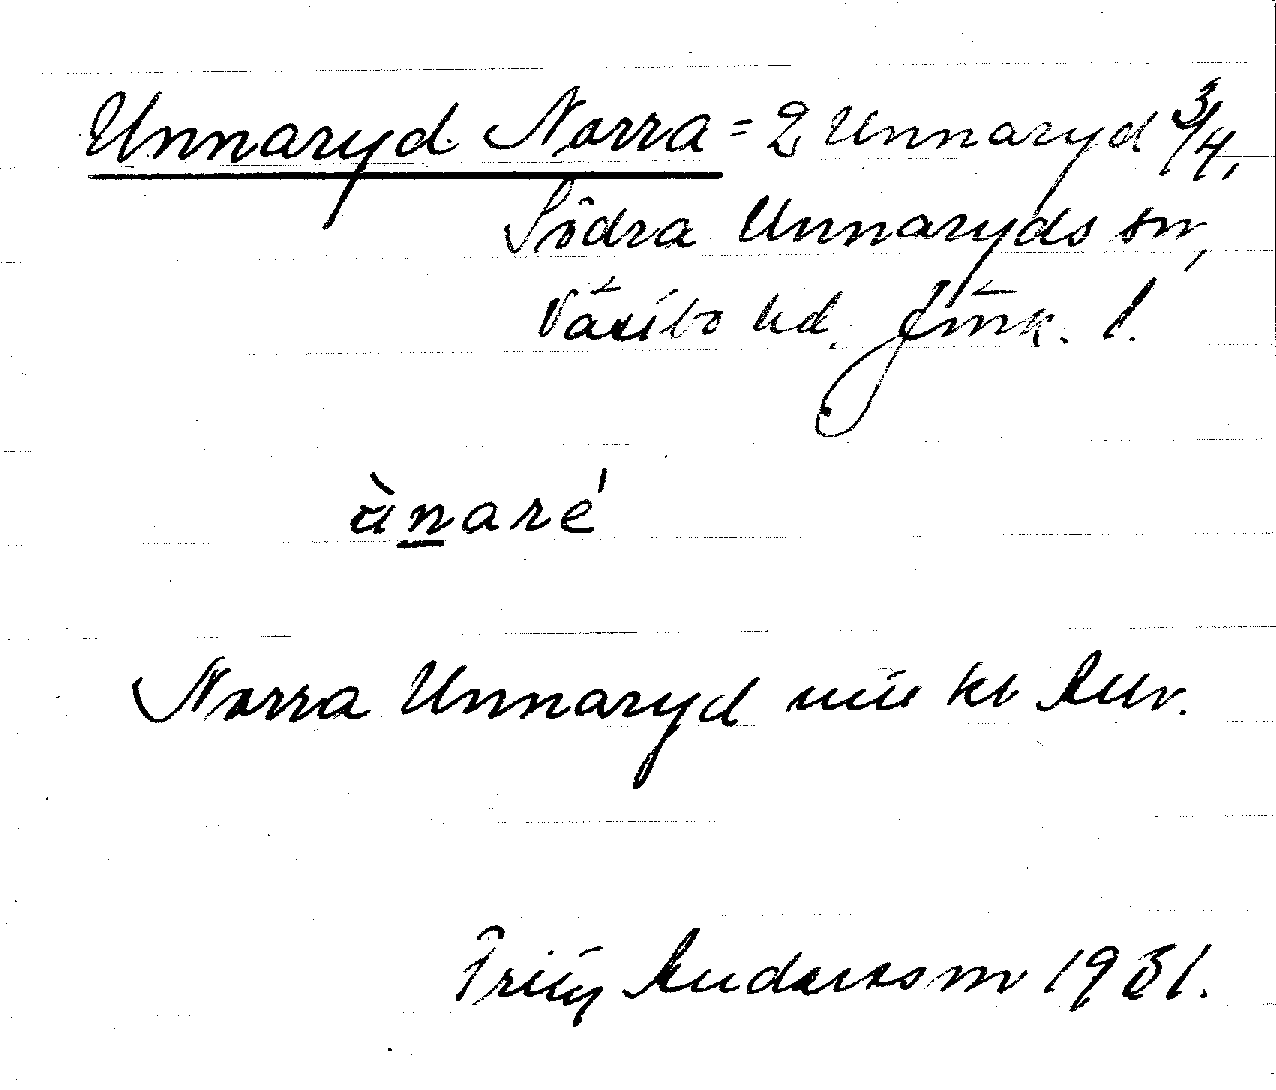 Unnaryd Norra = 2 Unnaryd 3/4,
Södra Unnaryds sn,
Västbo hd. Jönk. l.
ùnaré
Norra Unnaryd
Andersson 1931.